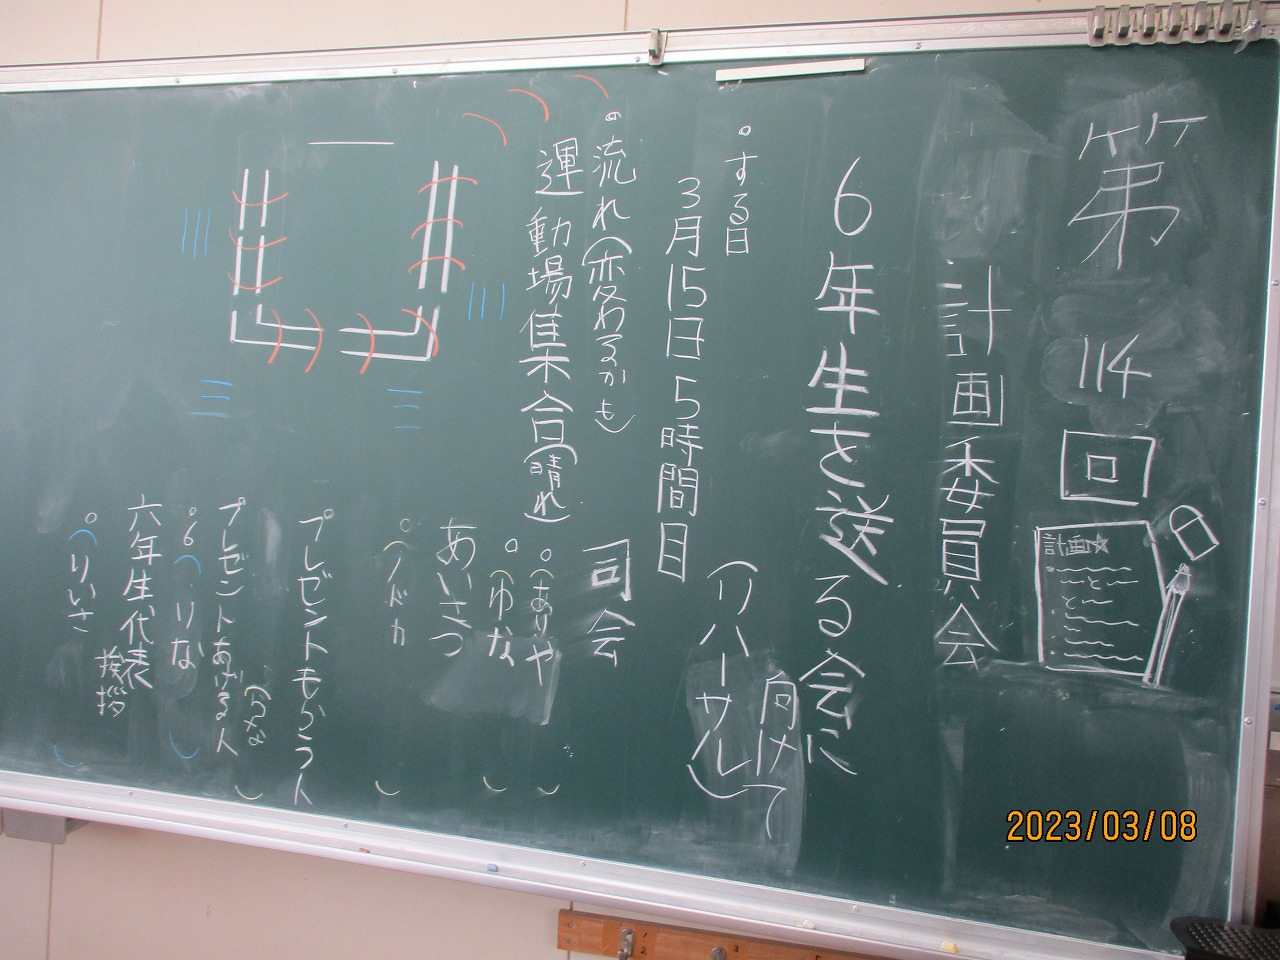 第114回
計画☆
計画委員会
6年生を送る会に
向けて
(リハーサル)
。する日
3月15日5時間目
。流れ(変わるかも)
運動場集合(晴れ)
司会
。(ありや)
。(ゆな)
あいさつ
。()
プレゼントもらう人
プレゼントあげる人
。6(りな)
六年生代表
挨拶
。(りいさ)
2023/03/08